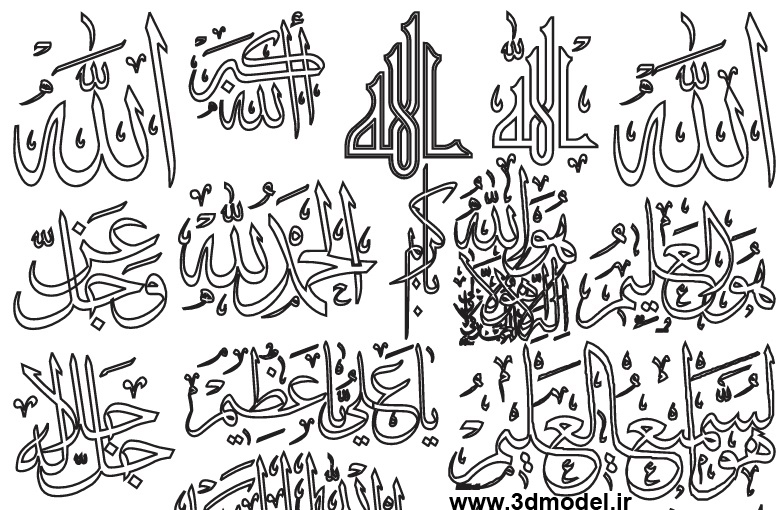 الله
الله
الله
الله أكبر
الله
هو العليم
يا كريم
الحمد لله
عز وجل
هو السميع العليم
يا علي يا عظيم
جل جلاله
www.3dmodel.ir